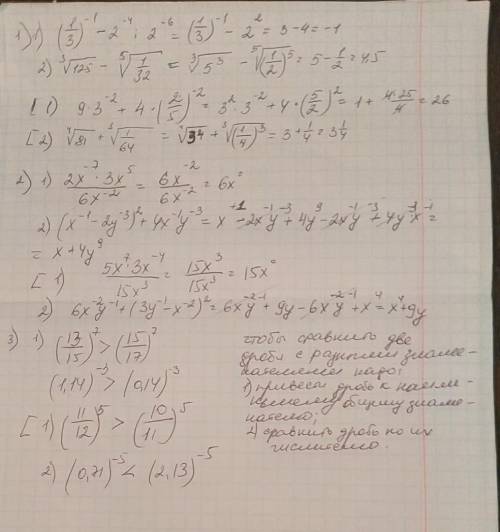 1) 1) (1/3)^-1 - 2^-4 : 2^-6 = (1/3)^-1 - 2^2 = 3 - 4 = -1
2) ∛125 - ⁵√(1/32) = ∛(5^3) - ⁵√((1/2)^5) = 5 - 1/2 = 4.5
[ 1) 9·3^-2 + 4·(2/5)^-2 = 3^2·3^-2 + 4·(5/2)^2 = 1 + 4·25/4 = 26
[ 2) ⁴√81 + ∛(1/64) = ⁴√(3^4) + ∛((1/4)^3) = 3 + 1/4 = 3 1/4
2) 1) 2x^-7·3x^5 / 6x^-2 = 6x^-2 / 6x^-2 = 6x^0
2) (x^-1 - 2y^-3)^2 + 4x^-1y^-3 = x^+1 - 2x^-1y^-3 + 4y^9 - 2x^-1y^-3 + 4y^-3x^-1 =
= x + 4y^9
[ 1) 5x^7·3x^-4 / 15x^3 = 15x^3 / 15x^3 = 15x^0
2) 6x^-2y^-1 + (3y^-1 - x^-2)^2 = 6x^-2y^-1 + 9y - 6x^-2y^-1 + x^4 = x^4 + 9y
3) 1) (13/15)^7 > (15/17)^7
(1,14)^-3 > (0,14)^-3
[ 1) (11/12)^5 > (10/11)^5
2) (0,71)^-5 < (2,13)^-5
чтобы сравнить две
дроби с разными знаме-
нателями надо:
1) привести дробь к наиме-
ньшему общему знаме-
нателю;
2) сравнить дробь по их
числителю.